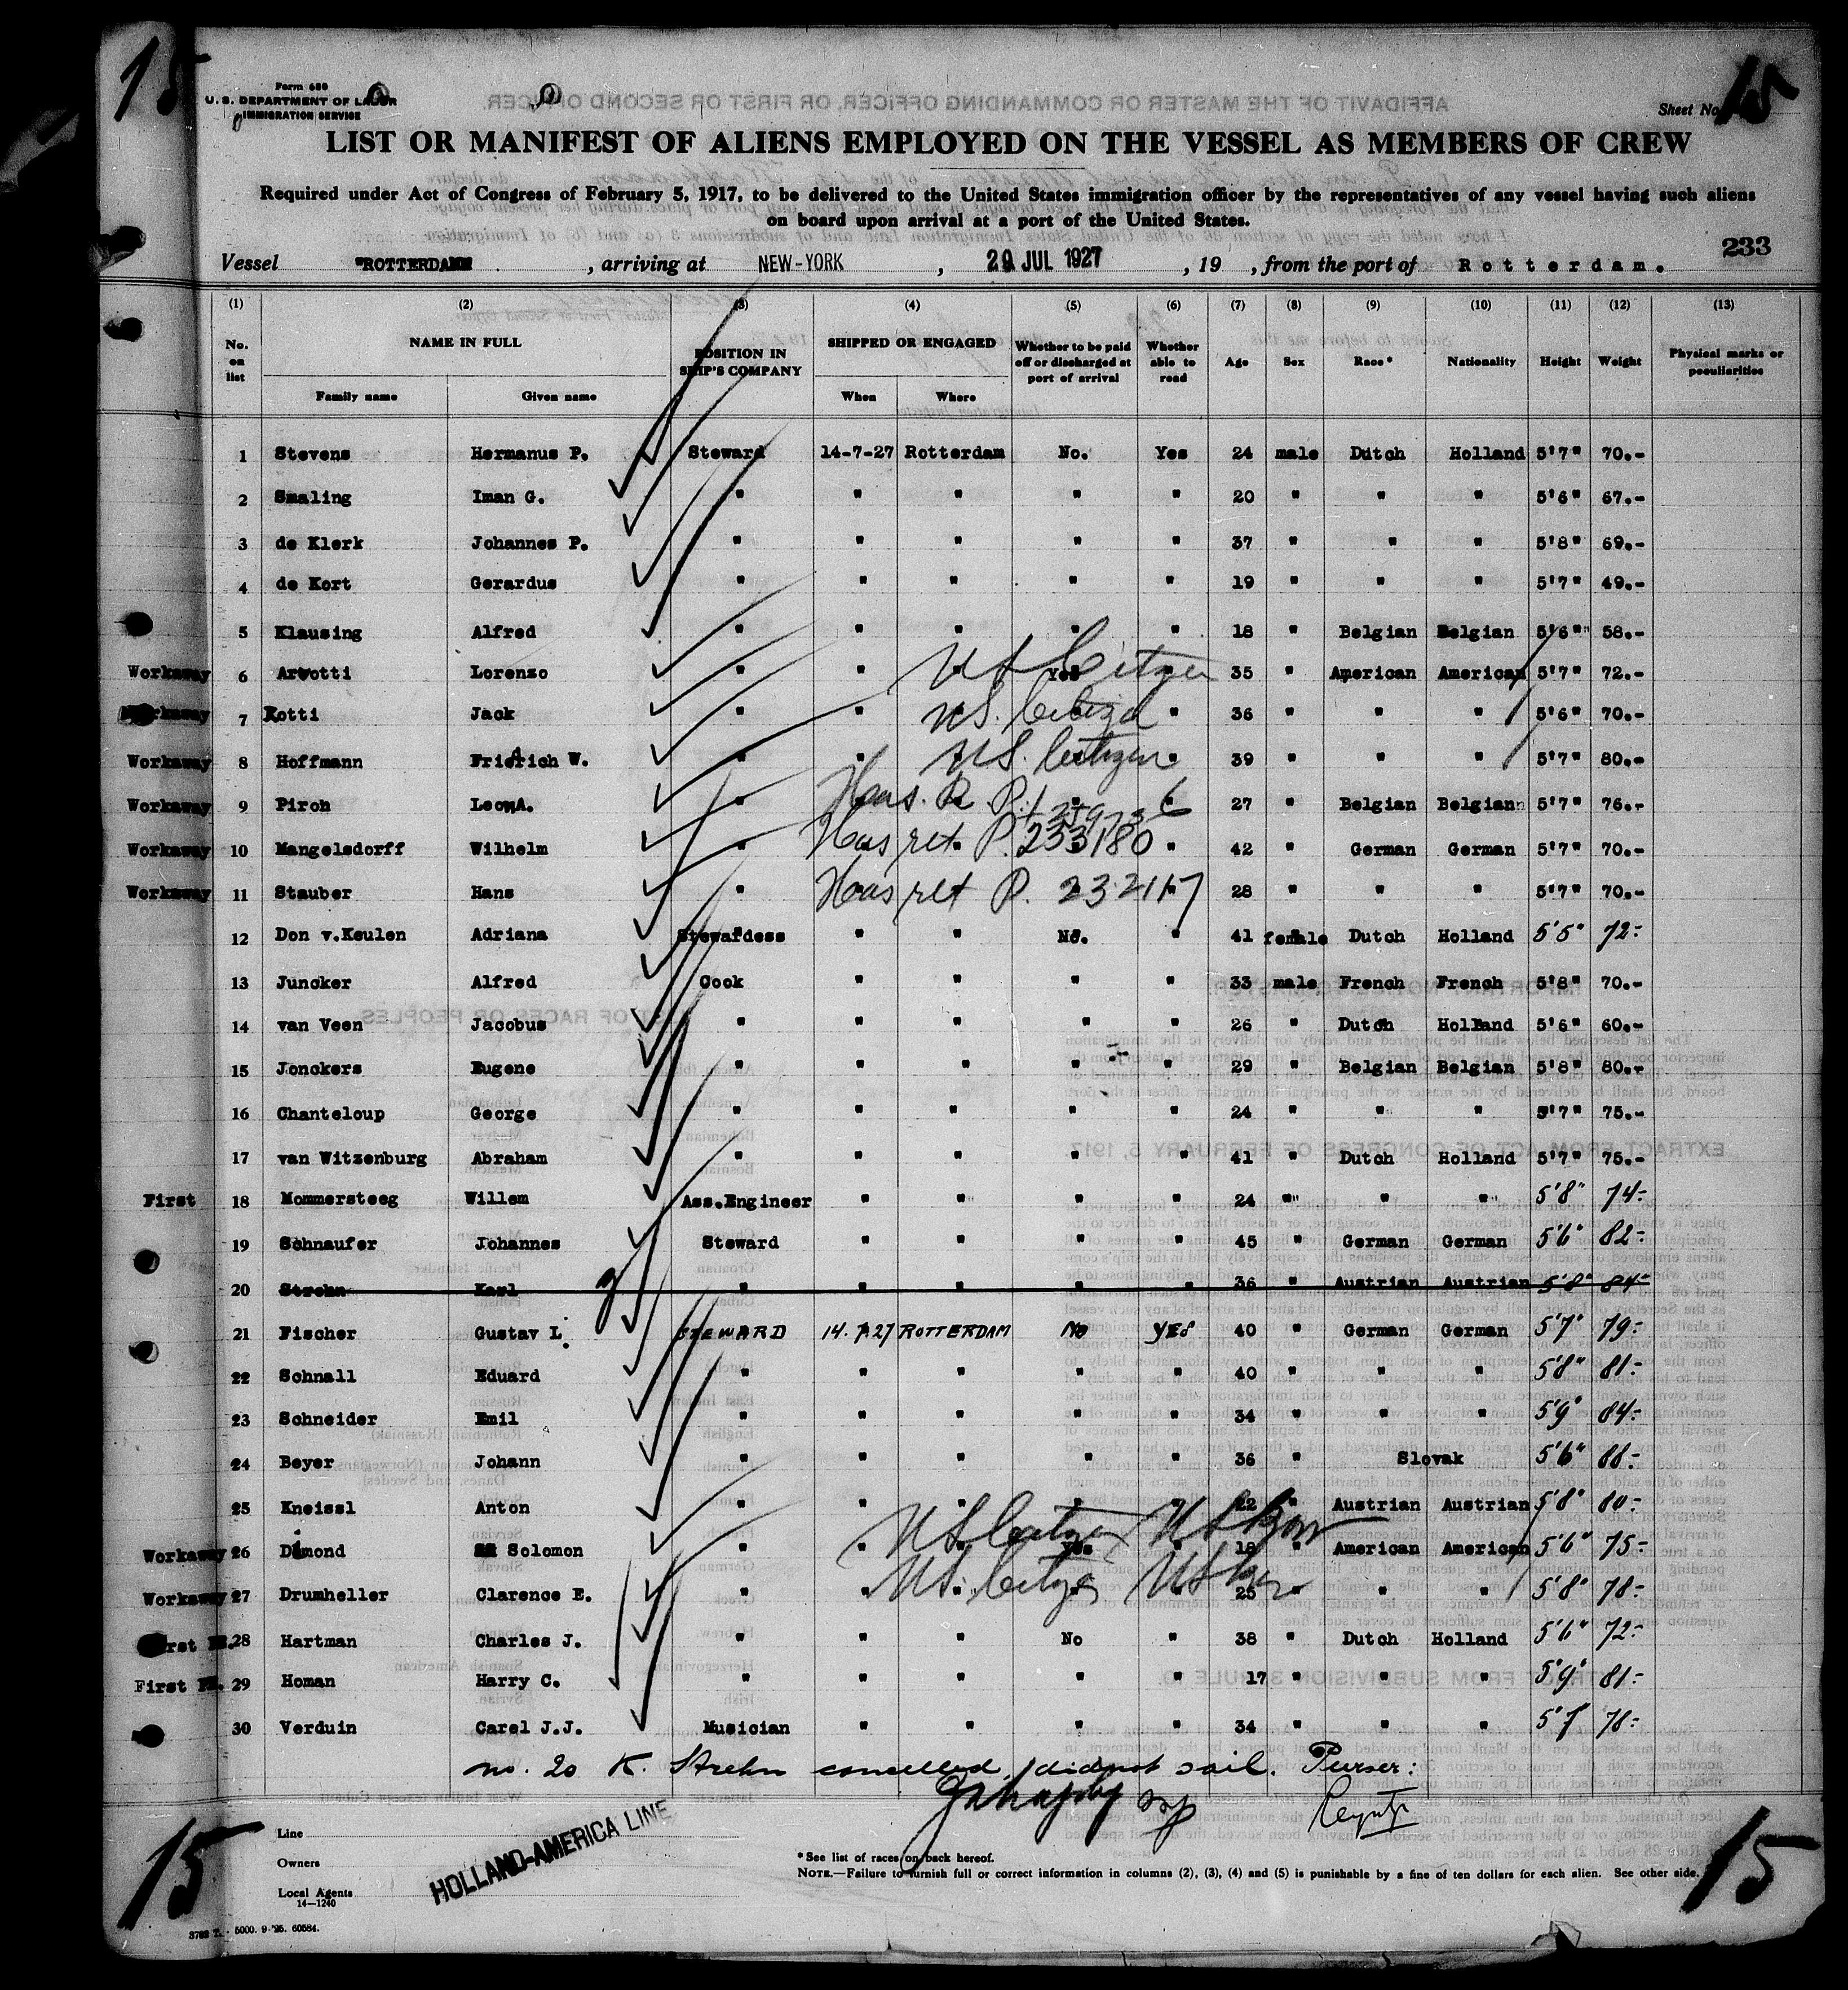 15
Form 680
U. S. DEPARTMENT OF LABOR
IMMIGRATION SERVICE
Sheet No. 15
LIST OR MANIFEST OF ALIENS EMPLOYED ON THE VESSEL AS MEMBERS OF CREW
Required under Act of Congress of February 5, 1917, to be delivered to the United States immigration officer by the representatives of any vessel having such aliens
on board upon arrival at a port of the United States.
233
Vessel "ROTTERDAM" , arriving at NEW-YORK , 29 JUL 1927 , 19 , from the port of Rotterdam.
(1) (2) (3) (4) (5) (6) (7) (8) (9) (10) (11) (12) (13)
No. on list NAME IN FULL POSITION IN SHIP'S COMPANY SHIPPED OR ENGAGED Whether to be paid off or discharged at port of arrival Whether able to read Age Sex Race* Nationality Height Weight Physical marks or peculiarities
Family name Given name When Where
1 Stevens Hermanus P. Steward 14-7-27 Rotterdam No. Yes 24 male Dutch Holland 5'7" 70.-
2 Smaling Iman G. " " " " " 20 " " " 5'6" 67.-
3 de Klerk Johannes P. " " " " " 37 " " " 5'8" 69.-
4 de Kort Gerardus " " " " " 19 " " " 5'7" 49.-
5 Klausing Alfred " " " " " 18 " Belgian Belgian 5'6" 58.-
Workaway 6 Arvotti Lorenzo " " " Yes " 35 " American American 5'7" 72.-
US Citizen
Workaway 7 Kotti Jack " " " " " 36 " " " 5'6" 70.-
US. Citizen
Workaway 8 Hoffmann Friedrich W. " " " " " 39 " " " 5'7" 80.-
US. Citizen
Workaway 9 Piroh Leon A. " " " " " 27 " Belgian Belgian 5'7" 76.-
Has R. P.
Workaway 10 Mangelsdorff Wilhelm " " " " " 42 " German German 5'7" 70.-
Has ret P. 233180
Workaway 11 Stauber Hans " " " " " 28 " " " 5'7" 70.-
Has ret P. 232117
12 Don v.Keulen Adriana Stewardess " " No. " 41 female Dutch Holland 5'5" 72-
13 Juncker Alfred Cook " " " " 33 male French French 5'8" 70.-
14 van Veen Jacobus " " " " " 26 " Dutch Holland 5'6" 60.-
15 Jonckers Eugene " " " " " 29 " Belgian Belgian 5'8" 80.-
16 Chanteloup George " " " " " 24 " " " 5'7" 75.-
17 van Witzenburg Abraham " " " " " 41 " Dutch Holland 5'7" 75.-
First 18 Mommersteeg Willem Ass.Engineer " " " " 24 " " " 5'8" 74-
19 Schnaufer Johannes Steward " " " " 45 " German German 5'6" 82-
20 Strehn Karl " " " " " 36 " Austrian Austrian 5'8" 84-
21 Fischer Gustav L. STEWARD 14.7.27 ROTTERDAM No YES 40 " German German 5'7" 79-
22 Schnall Eduard " " " " " 40 " " " 5'8" 81-
23 Schneider Emil " " " " " 34 " " " 5'9" 84-
24 Beyer Johann " " " " " 36 " Slovak 5'6" 88-
25 Kneissl Anton " " " " " 22 " Austrian Austrian 5'8" 80-
Workaway 26 Dimond Solomon " " " Yes " 18 " American American 5'6" 75-
US Citizen US Born
Workaway 27 Drumheller Clarence E. " " " " " 25 " " " 5'8" 78-
US. Citizen US Born
First 28 Hartman Charles J. " " " No " 38 " Dutch Holland 5'6" 72-
First 29 Homan Harry C. " " " " " 17 " " " 5'9" 81-
30 Verduin Carel J.J. Musician " " " " 34 " " " 5'7" 78-
no. 20 K. Strehn cancelled, did not sail. Purser:
Line
HOLLAND-AMERICA LINE
Owners
Local Agents
14—1240
* See list of races on back hereof.
NOTE.—Failure to furnish full or correct information in columns (2), (3), (4) and (5) is punishable by a fine of ten dollars for each alien. See other side.
5000. 9-'25. 60584.
15
15